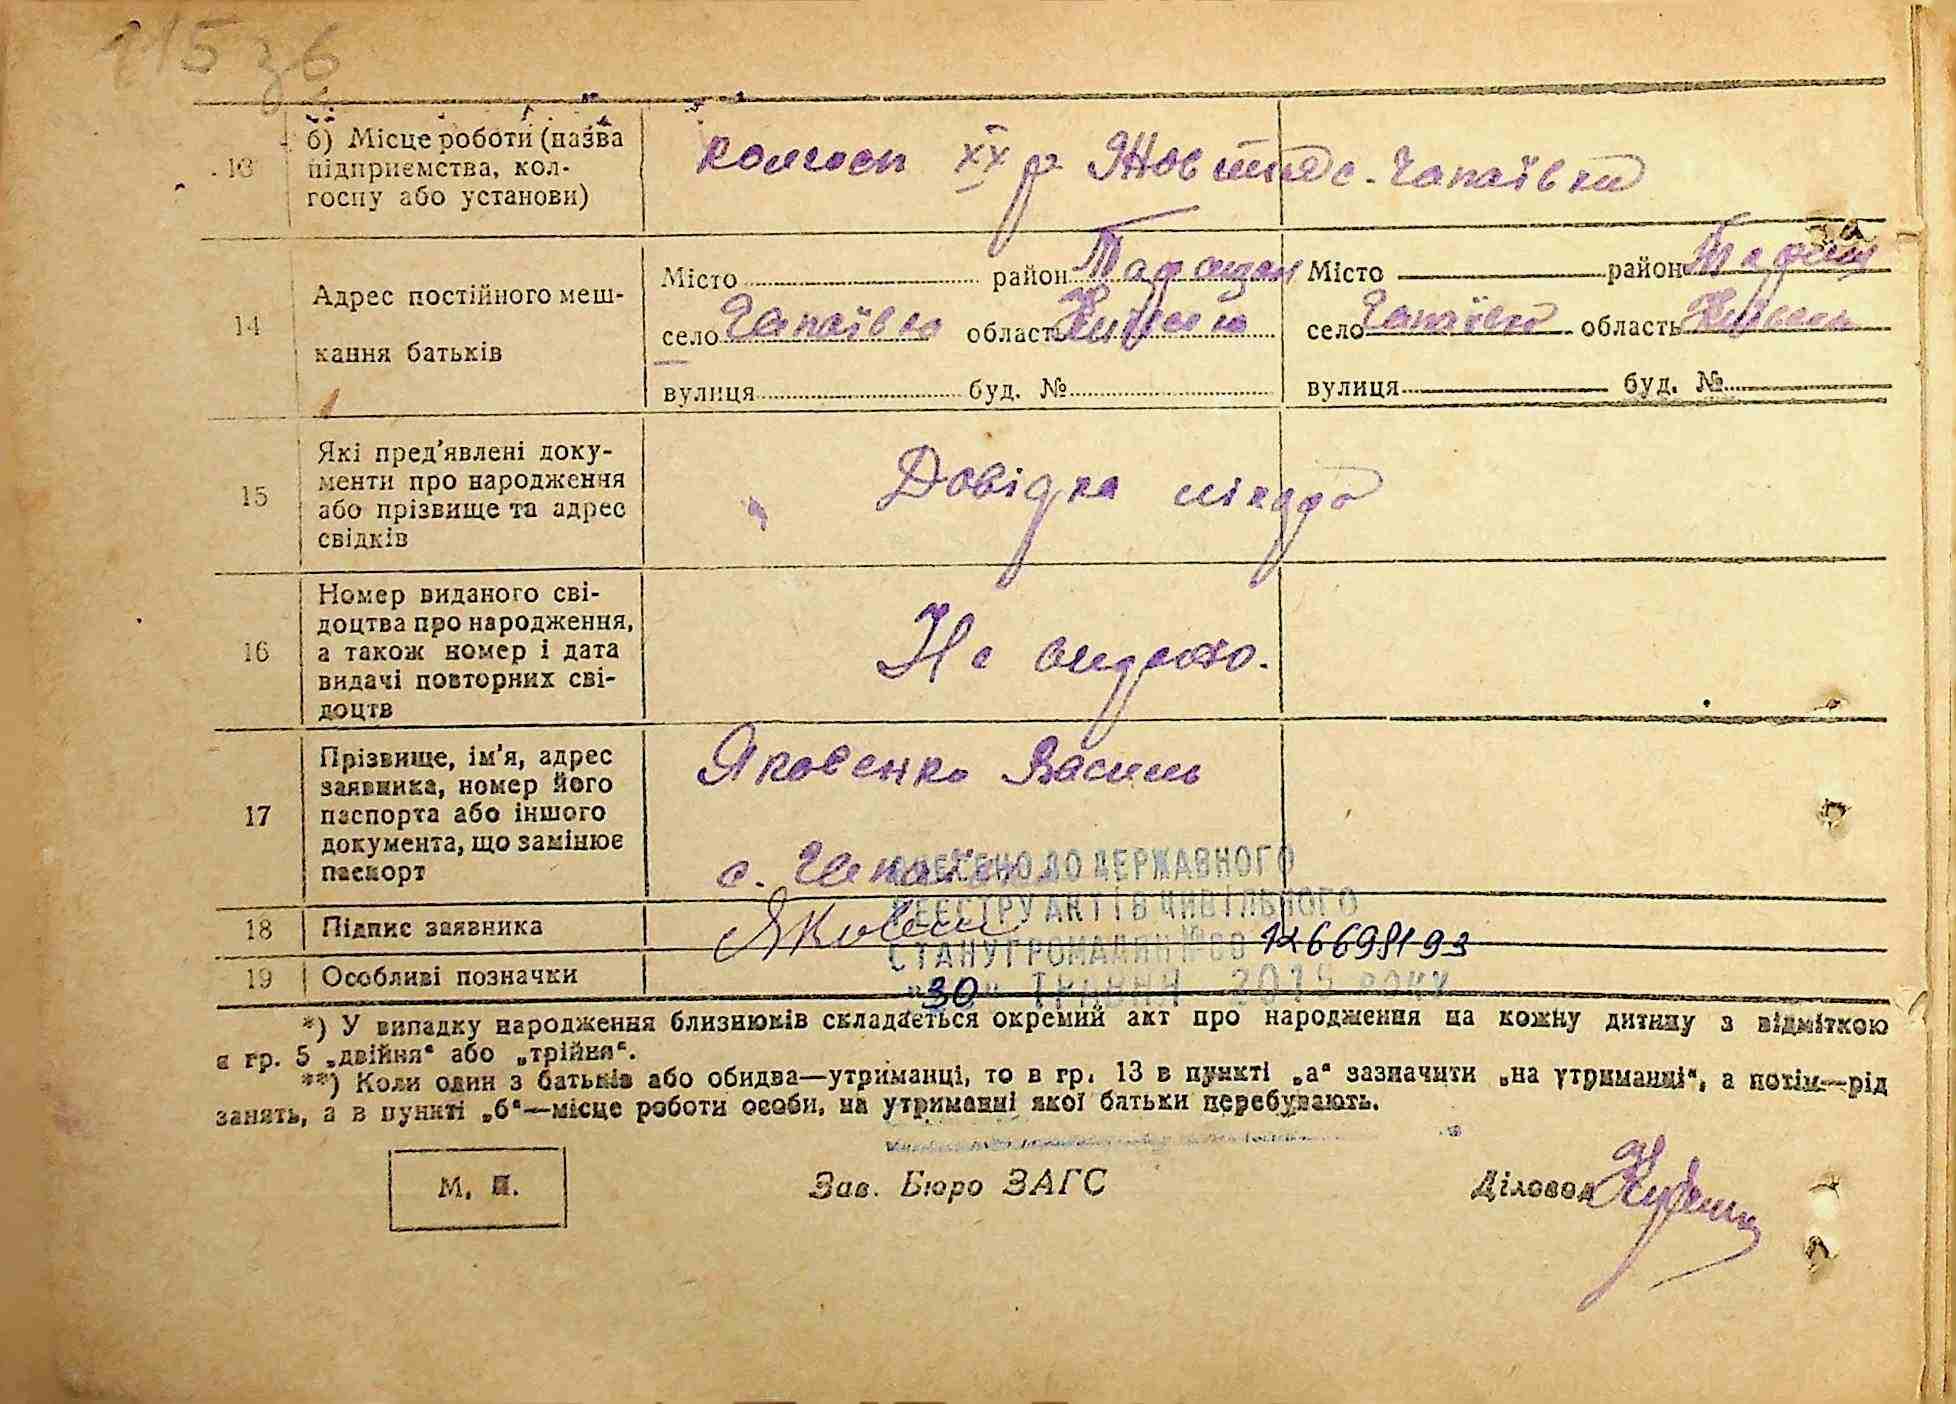 215 зв
13 б) Місце роботи (назва підприємства, колгоспу або установи)
колгосп ХХ р Жовтня с. Чапаївки
14 Адрес постійного мешкання батьків
Місто район Таращан
село Чапаївка область Київська
вулиця буд. №
Місто район Таращ
село Чапаївка область Київська
вулиця буд. №
15 Які пред'явлені документи про народження або прізвище та адрес свідків
Довідка
16 Номер виданого свідоцтва про народження, а також номер і дата видачі повторних свідоцтв
Не видано.
17 Прізвище, ім'я, адрес заявника, номер його паспорта або іншого документа, що замінює паспорт
Яковенко Василь
с. Чапаївка
18 Підпис заявника
19 Особливі позначки
ВНЕСЕНО ДО ДЕРЖАВНОГО
РЕЄСТРУ АКТІВ ЦИВІЛЬНОГО
СТАНУ ГРОМАДЯН №00126698193
"30" ТРАВНЯ року
*) У випадку народження близнюків складається окремий акт про народження на кожну дитину з відміткою
в гр. 5 „двійня“ або „трійня“.
**) Коли один з батьків або обидва—утриманці, то в гр. 13 в пункті „а“ зазначити „на утриманні“, а потім—рід
занять, а в пункті „б“—місце роботи особи, на утриманні якої батьки перебувають.
М. П.
Зав. Бюро ЗАГС
Діловод